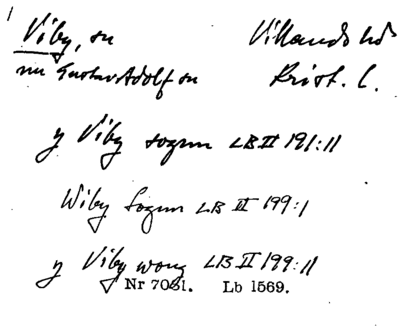 Viby, sn Villands hd
nu Gustav Adolf sn Krist. l.
y Viby sognn LB II 191:11
Wiby Sognn LB III 199:1
y Viby wong LB II 199:11
Nr 7031. Lb 1569.